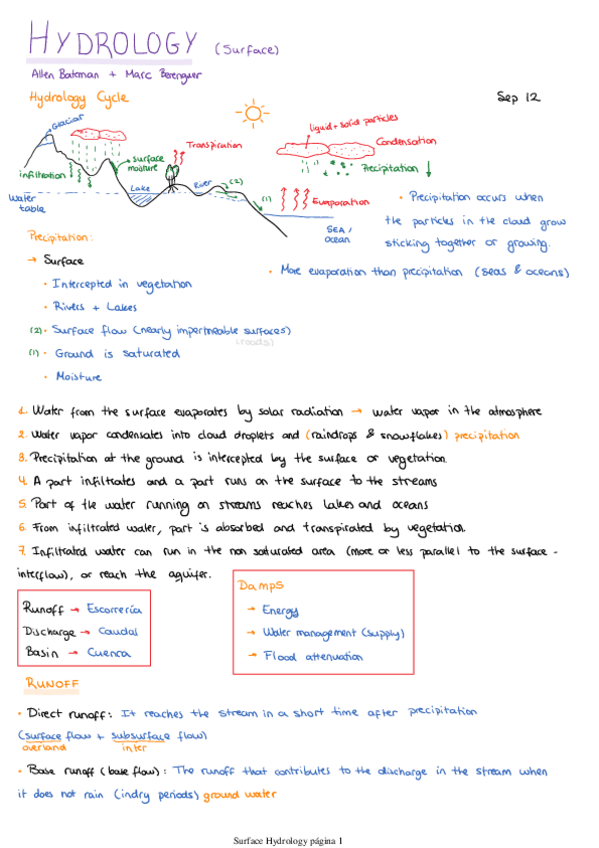 HYDROLOGY (Surface)
Allen Bateman + Marc Berenguer
Hydrology Cycle
Sep 12
Glaciar
liquid + solid particles
Transpiration
Condensation
infiltration
surface moisture
Precipitation
Lake
River
(2)
(1)
Evaporation
water table
SEA / OCEAN
• Precipitation occurs when
the particles in the cloud grow
sticking together or growing.
• More evaporation than precipitation (seas & oceans)
Precipitation:
→ Surface
• Intercepted in vegetation
• Rivers + Lakes
(2) • Surface flow (nearly impermeable surfaces)
(roads)
(1) • Ground is saturated
• Moisture
1. Water from the surface evaporates by solar radiation → water vapor in the atmosphere
2. Water vapor condensates into cloud droplets and (raindrops & snowflakes) precipitation
3. Precipitation at the ground is intercepted by the surface or vegetation.
4. A part infiltrates and a part runs on the surface to the streams
5. Part of the water running on streams reaches lakes and oceans
6. From infiltrated water, part is absorbed and transpirated by vegetation.
7. Infiltrated water can run in the non saturated area (more or less parallel to the surface -
interflow), or reach the aquifer.
Runoff → Escorrería
Discharge → Caudal
Basin → Cuenca
Damps
→ Energy
→ Water management (supply)
→ Flood attenuation
RUNOFF
• Direct runoff: It reaches the stream in a short time after precipitation
(surface flow + subsurface flow)
overland inter
• Base runoff (base flow): The runoff that contributes to the discharge in the stream when
it does not rain (indry periods) ground water
Surface Hydrology página 1